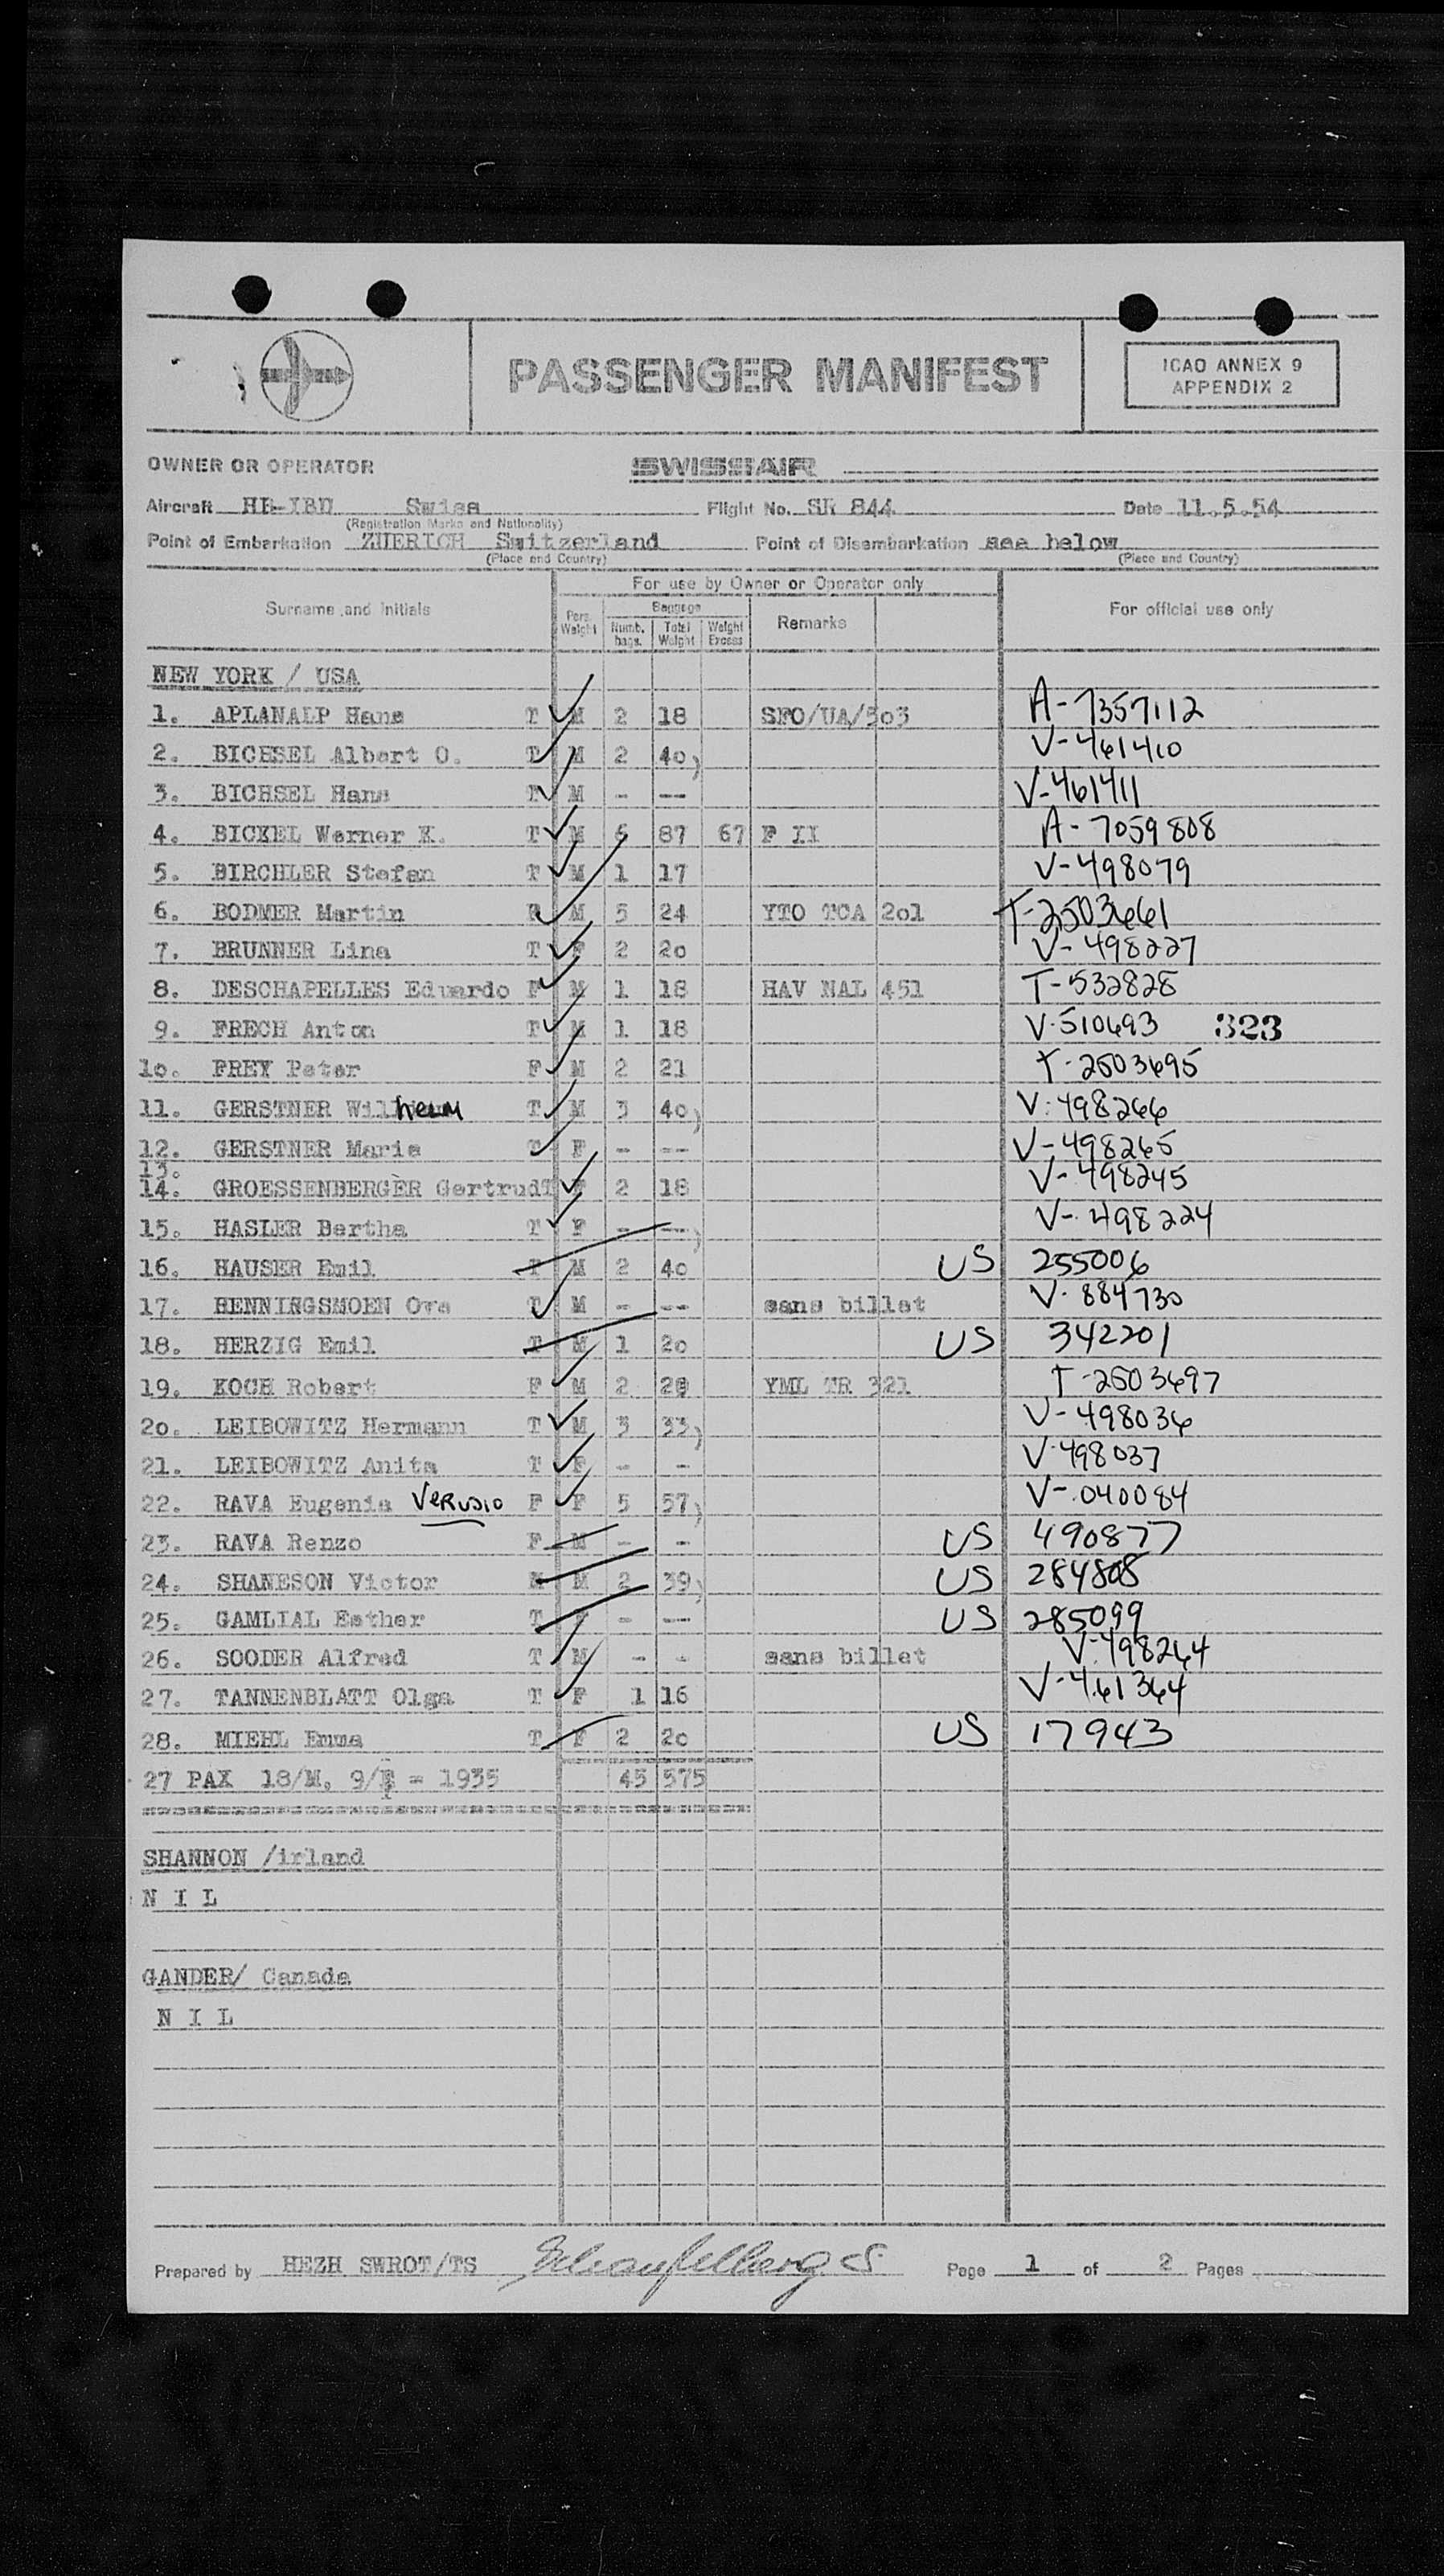 PASSENGER MANIFEST
ICAO ANNEX 9
APPENDIX 2
OWNER OR OPERATOR SWISSAIR
Aircraft HB-IBU Swiss Flight No. SR 844 Date 11.5.54
(Registration Marks and Nationality)
Point of Embarkation ZUERICH Switzerland Point of Disembarkation see below
(Place and Country) (Place and Country)
For use by Owner or Operator only
Surname and Initials Pers. Weight Baggage Numb. bags. Total Weight Weight Excess Remarks For official use only
NEW YORK / USA
1. APLANALP Hans T M 2 18 SFO/UA/503 A-7357112
2. BICHSEL Albert O. T M 2 40) V-461410
3. BICHSEL Hans T M - -- V-461411
4. BICKEL Werner K. T M 6 87 67 F II A-7059808
5. BIRCHLER Stefan T M 1 17 V-498079
6. BODMER Martin F M 5 24 YTO TCA 201 T-2503661
7. BRUNNER Lina T F 2 20 V-498227
8. DESCHAPELLES Eduardo F M 1 18 HAV NAL 451 T-532828
9. FRECH Anton T M 1 18 V-510693 323
10. FREY Peter F M 2 21 T-2503695
11. GERSTNER Wilhelm T M 3 40) V-498266
12. GERSTNER Marie T F - -- V-498265
13.
14. GROESSENBERGER Gertrud T F 2 18 V-498245
15. HASLER Bertha T F - --) V-498224
16. HAUSER Emil T M 2 40 US 255006
17. HENNINGSMOEN Ove T M - -- sans billet V-884730
18. HERZIG Emil T M 1 20 US 342201
19. KOCH Robert F M 2 28 YML TR 321 T-2503697
20. LEIBOWITZ Hermann T M 3 33) V-498036
21. LEIBOWITZ Anita T F - - V-498037
22. RAVA Eugenia VERUSIO F F 5 57) V-040084
23. RAVA Renzo F M - - US 490877
24. SHANESON Victor M 2 39) US 284808
25. GAMLIAL Esther T F - -- US 285099
26. SOODER Alfred T M - - sans billet V-498264
27. TANNENBLATT Olga T F 1 16 V-461364
28. MIEHL Emma T F 2 20 US 17943
27 PAX 18/M, 9/F = 1935 45 575
SHANNON /irland
N I L
GANDER/ Canada
N I L
Prepared by HEZH SWROT/TS Page 1 of 2 Pages